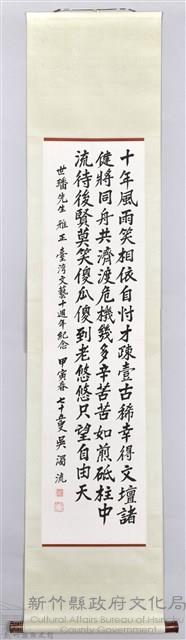 十年風雨笑相依自忖才疎壹古稀幸得文壇諸
健將同舟共濟渡危機幾多辛苦苦如煎砥柱中
流待後賢莫笑傻瓜傻到老悠悠只望自由天
世璠先生 雅正 臺灣文藝十週年紀念 甲寅春 七十五叟 吳濁流
新竹縣政府文化局
Cultural Affairs Bureau of Hsinchu
County Government